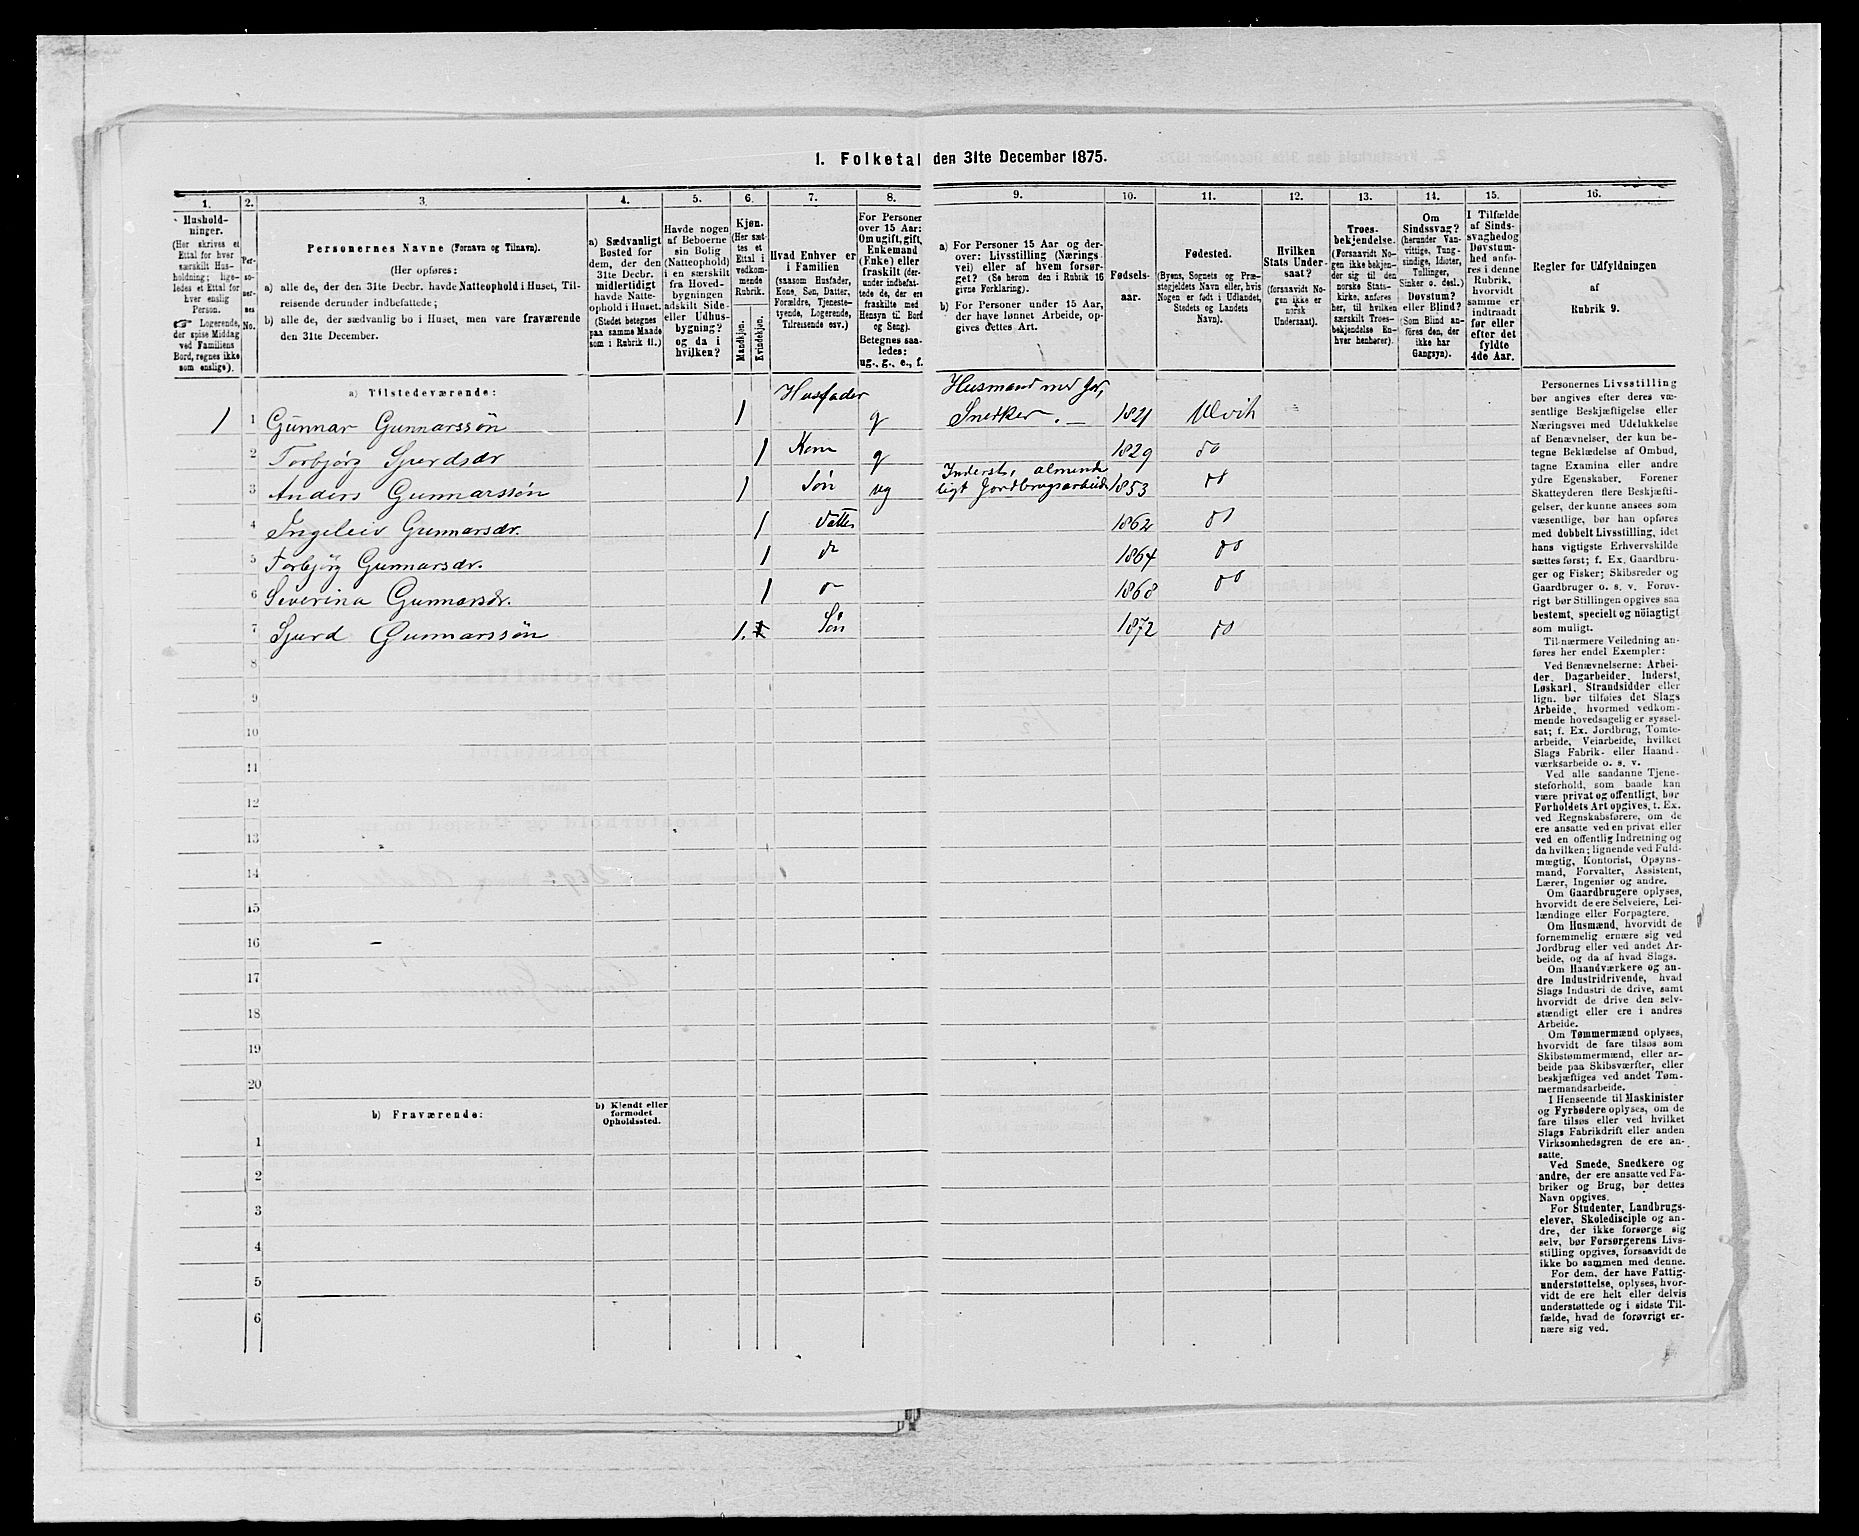 1. Folketal den 31te December 1875.
1.
2.
3.
4.
5.
6.
7.
8.
9.
10.
11.
12.
13.
14.
15.
16.
Hushold-
ninger.
(Her skrives et
Ettal for hver
særskilt Hus-
holdning; lige-
ledes et Ettal for
hver enslig
Person.
☞ Logerende,
der spise Middag
ved Familiens
Bord, regnes ikke
som enslige).
Per-
so-
ner-
nes
No.
Personernes Navne (Fornavn og Tilnavn).
(Her opføres:
a) alle de, der den 31te Decbr. havde Natteophold i Huset, Til-
reisende derunder indbefattede;
b) alle de, der sædvanlig bo i Huset, men vare fraværende
den 31te December.
a) Sædvanligt
Bosted for
dem, der den
31te Decbr.
midlertidigt
havde Natte-
ophold i Huset.
(Stedet betegnes
paa samme Maade
som i Rubrik 11.)
Havde nogen
af Beboerne
sin Bolig
(Natteophold)
i en særskilt
fra Hoved-
bygningen
adskilt Side-
eller Udhus-
bygning?
og da i
hvilken?
Kjøn.
(Her sæt-
tes et
Ettal i
vedkom-
mende
Rubrik.
Mandkjøn.
Kvindekjøn.
Hvad Enhver er
i Familien
(saasom Husfader,
Kone, Søn, Datter,
Forældre, Tjeneste-
tyende, Logerende,
Tilreisende osv.)
For Personer
over 15 Aar:
Om ugift, gift,
Enkemand
(Enke) eller
fraskilt (der-
under indbe-
fattet de, der ere
fraskilte med
Hensyn til Bord
og Seng).
Betegnes saa-
ledes:
ug., g., e., f.
a) For Personer 15 Aar og der-
over: Livsstilling (Nærings-
vei) eller af hvem forsør-
get? (Se herom den i Rubrik 16
givne Forklaring).
b) For Personer under 15 Aar,
der have lønnet Arbeide, op-
gives dettes Art.
Fødsels-
aar.
Fødested.
(Byens, Sognets og Præ-
stegjeldets Navn eller, hvis
Nogen er født i Udlandet,
Stedets og Landets
Navn).
Hvilken
Stats Under-
saat?
(forsaavidt No-
gen ikke er
norsk
Undersaat).
Troes-
bekjendelse.
(Forsaavidt No-
gen ikke bekjen-
der sig til den
norske Stats-
kirke, anføres
her, til hvilken
særskilt Troes-
bekjendelse En-
hver henhører).
Om
Sindssvag?
(herunder Van-
vittige, Tung-
sindige, Idioter,
Tullinger,
Sinker o. desl.)
Døvstum?
eller Blind?
(Som Blind an-
føres den, der
ikke har
Gangsyn).
I Tilfælde
af Sinds-
svaghed og
Døvstum-
hed anfø-
res i denne
Rubrik,
hvorvidt
samme er
indtraadt
før eller
efter det
fyldte
4de Aar.
Regler for Udfyldningen
af
Rubrik 9.
a) Tilstedeværende:
1 1 Gunnar Gunnarssøn 1 Husfader g Husmand med Jor, Snedker. 1821 Ulvik
2 Torbjørg Sjurdsdr 1 Kone g 1829 do
3 Anders Gunnarssøn 1 Søn ug Inderst, alminde ligt Jordbrugsarbeide 1853 do
4 Ingeleiv Gunnarsdr. 1 Datter 1862 do
5 Torbjørg Gunnarsdr. 1 do 1864 do
6 Severina Gunnarsdr. 1 do 1868 do
7 Sjurd Gunnarssøn 1. Søn 1872 do
8
9
10
11
12
13
14
15
16
17
18
19
20
b) Fraværende:
b) Kjendt eller
formodet
Opholdssted.
1
2
3
4
5
6
Personernes Livsstilling
bør angives efter deres væ-
sentlige Beskjæftigelse eller
Næringsvei med Udelukkelse
af Benævnelser, der kun be-
tegne Beklædelse af Ombud,
tagne Examina eller andre
ydre Egenskaber. Forener
Skatteyderen flere Beskjæfti-
gelser, der kunne ansees som
væsentlige, bør han opføres
med dobbelt Livsstilling, idet
hans vigtigste Erhvervskilde
sættes først; f. Ex. Gaardbru-
ger og Fisker; Skibsreder og
Gaardbruger o. s. v. Forøv-
rigt bør Stillingen opgives saa
bestemt, specielt og nöiagtigt
som muligt.
Til nærmere Veiledning an-
føres her endel Exempler:
Ved Benævnelserne: Arbei-
der, Dagarbeider, Inderst,
Løskarl, Strandsidder eller
lign. bør tilføies det Slags
Arbeide, hvormed vedkom-
mende hovedsagelig er syssel-
sat; f. Ex. Jordbrug, Tomte-
arbeide, Veiarbeide, hvilket
Slags Fabrik- eller Haand-
værksarbeide o. s. v.
Ved alle saadanne Tjene-
steforhold, som baade kan
være privat og offentligt, bør
Forholdets Art opgives, t. Ex.
ved Regnskabsførere, om de
ere ansatte ved en privat eller
ved en offentlig Indretning og
da hvilken; lignende ved Fuld-
mægtig, Kontorist, Opsyns-
mand, Forvalter, Assistent,
Lærer, Ingeniør og andre.
Om Gaardbrugere oplyses,
hvorvidt de ere Selveiere, Lei-
lændinge eller Forpagtere.
Om Husmænd, hvorvidt de
fornemmelig ernære sig ved
Jordbrug eller ved andet Ar-
beide, og da af hvad Slags.
Om Haandværkere og an-
dre Industridrivende, hvad
Slags Industri de drive, samt
hvorvidt de drive den selv-
stændigt eller ere i andres
Arbeide.
Om Tømmermænd oplyses,
hvorvidt de fare tilsøs som
Skibstømmermænd, eller ar-
beide paa Skibsværfter, eller
beskjæftiges ved andet Tøm-
mermandsarbeide.
I Henseende til Maskinister
og Fyrbødere oplyses, om de
fare tilsøs eller ved hvilket
Slags Fabrikdrift eller anden
Virksomhedsgren de ere an-
satte.
Ved Smede, Snedkere og
andre, der ere ansatte ved Fa-
briker og Brug, bør dettes
Navn opgives.
For Studenter, Landbrugs-
elever, Skoledisciple og an-
dre, der ikke forsørge sig
selv, bør Forsørgerens Livs-
stilling opgives, forsaavidt de
ikke bo sammen med denne.
For dem, der have Fattig-
understøttelse, oplyses, hvor-
vidt de ere helt eller delvis
understøttede og i sidste Til-
fælde, hvad de forøvrigt er-
nære sig ved.